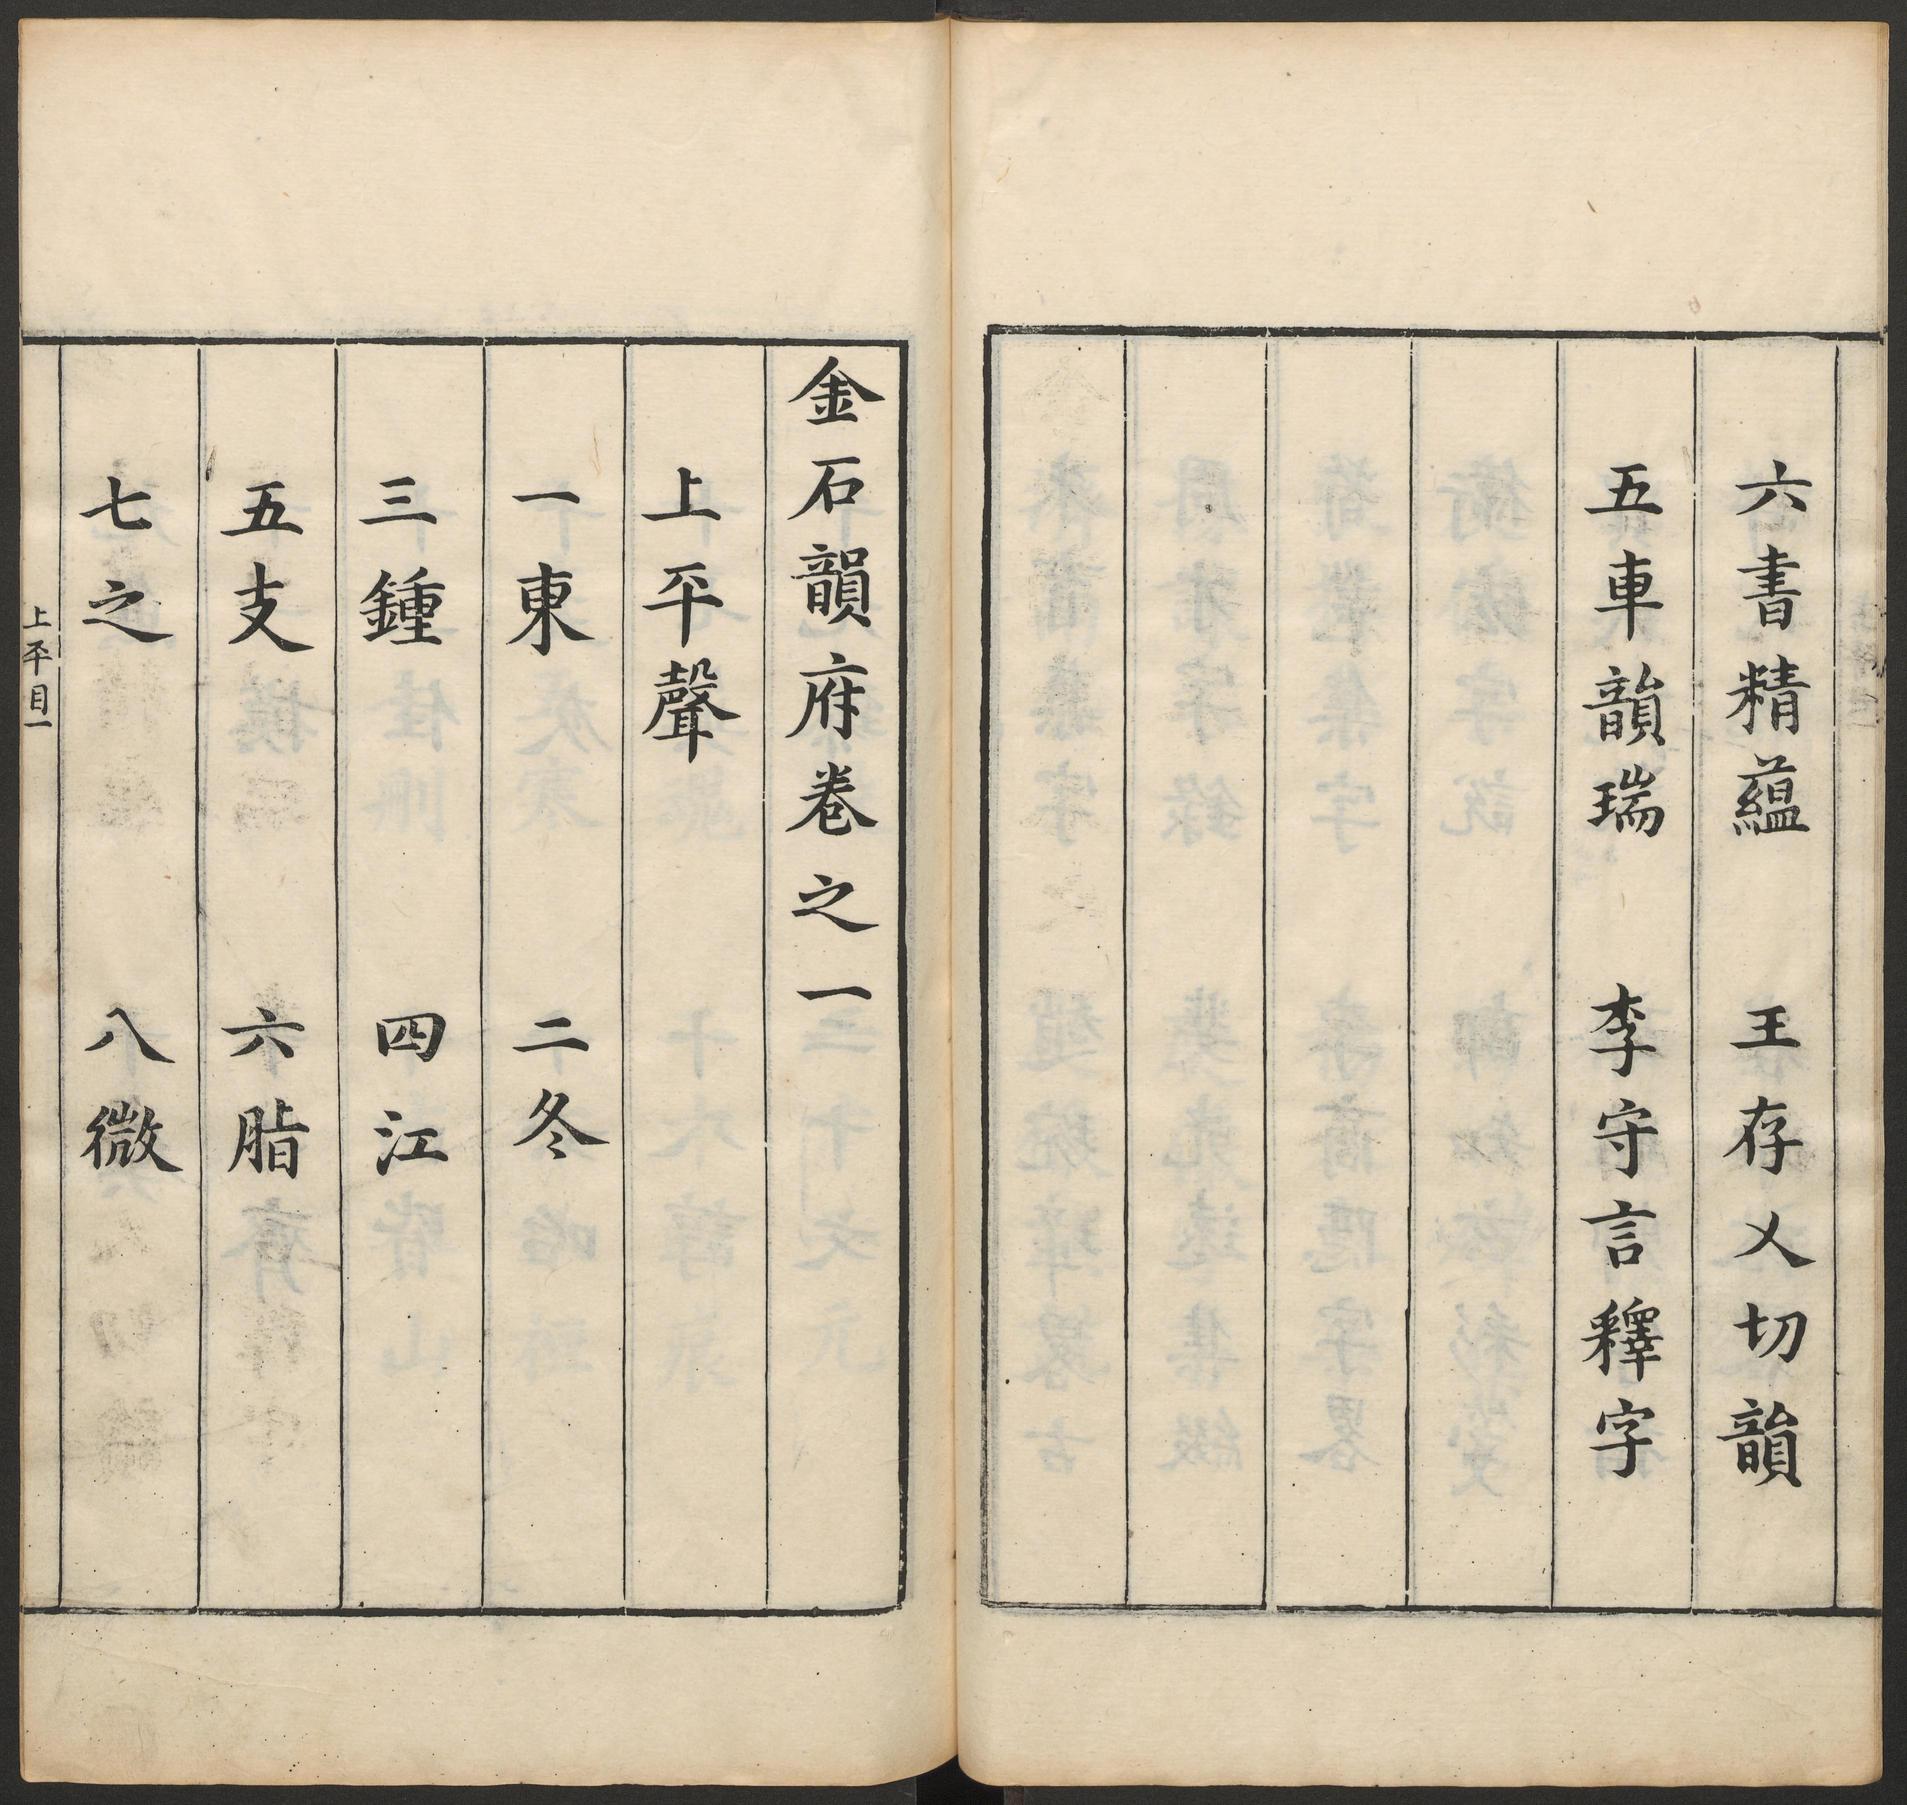 六書精蘊　王存乂切韻
五車韻瑞　李守言釋字
金石韻府卷之一
上平聲
一東　二冬
三鍾　四江
五支　六脂
七之　八微
上平目一